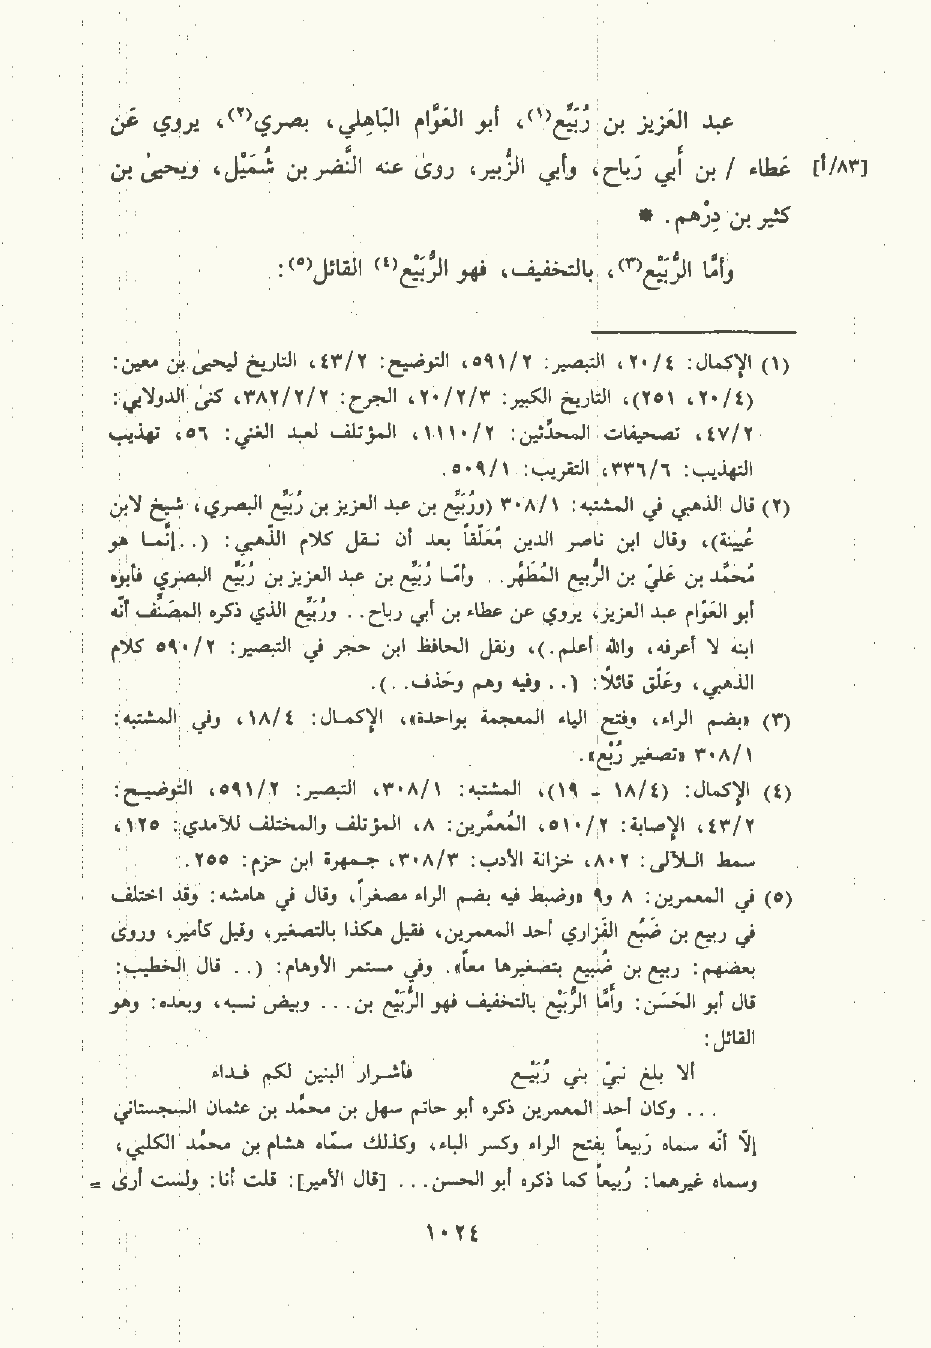 عبد العَزيز بن رُبَيِّع(١)، أبو العَوَّام البَاهِلي، بصري(٢)، يروي عَن
[٨٣/أ] عَطاء / بن أَبي رَباح، وأبي الزُّبير، روىٰ عنه النَّضر بن شُمَيْل، ويحيىٰ بن
كثير بن دِرْهم. *
وأمَّا الرُّبَيْع(٣)، بالتخفيف، فهو الرُّبَيْع(٤) القائل(٥):
(١) الإكمال: ٢٠/٤، التبصير: ٥٩١/٢، التوضيح: ٤٣/٢، التاريخ ليحيىٰ بن معين:
(٢٠/٤، ٢٥١)، التاريخ الكبير: ٢٠/٢/٣، الجرح: ٣٨٢/٢/٢، كنىٰ الدولابي:
٤٧/٢، تصحيفات المحدِّثين: ١١١٠/٢، المؤتلف لعبد الغني: ٥٦، تهذيب
التهذيب: ٣٣٦/٦، التقريب: ٥٠٩/١.
(٢) قال الذهبي في المشتبه: ٣٠٨/١ (ورُبَيِّع بن عبد العزيز بن رُبَيِّع البصري، شيخ لابن
عُيينة)، وقال ابن ناصر الدين مُعَلِّقاً بعد أن نقل كلام الذَّهبي: (.. إنَّما هو
مُحمَّد بن عَليّ بن الرَّبيع المُطَهَّر.. وأمّا رُبَيِّع بن عبد العزيز بن رُبَيِّع البصري فأبوه
أبو العَوّام عبد العزيز، يروي عن عطاء بن أبي رباح.. ورُبَيِّع الذي ذكره المصَنِّف أنّه
ابنه لا أعرفه، والله أعلم.)، ونقل الحافظ ابن حجر في التبصير: ٥٩٠/٢ كلام
الذهبي، وعَلّق قائلاً: (.. وفيه وهم وحَذف..).
(٣) «بضم الراء، وفتح الياء المعجمة بواحدة»، الإكمال: ١٨/٤، وفي المشتبه:
٣٠٨/١ «تصغير رُبْع».
(٤) الإكمال: (١٨/٤ - ١٩)، المشتبه: ٣٠٨/١، التبصير: ٥٩١/٢، التوضيح:
٤٣/٢، الإصابة: ٥١٠/٢، المُعمَّرين: ٨، المؤتلف والمختلف للآمدي: ١٢٥،
سمط اللآلى: ٨٠٢، خزانة الأدب: ٣٠٨/٣، جمهرة ابن حزم: ٢٥٥.
(٥) في المعمرين: ٨ و٩ «وضبط فيه بضم الراء مصغراً، وقال في هامشه: وقد اختلف
في ربيع بن ضَبُع الفَزاري أحد المعمرين، فقيل هكذا بالتصغير، وقيل كأمير، وروى
بعضهم: ربيع بن ضُبيع بتصغيرها معاً». وفي مستمر الأوهام: (.. قال الخطيب:
قال أبو الحَسَن: وأمَّا الرُّبَيْع بالتخفيف فهو الرُّبَيْع بن... وبيض نسبه، وبعده: وهو
القائل:
ألا بلغ نبيّ بني رُبَيْع فأشرار البنين لكم فداء
... وكان أحد المعمرين ذكره أبو حاتم سهل بن محمد بن عثمان السجستاني
إلّا أنّه سماه رَبيعاً بفتح الراء وكسر الباء، وكذلك سمّاه هشام بن محمّد الكلبي،
وسماه غيرهما: رُبيعاً كما ذكره أبو الحسن... [قال الأمير]: قلت أنا: ولست أرىٰ =
١٠٢٤